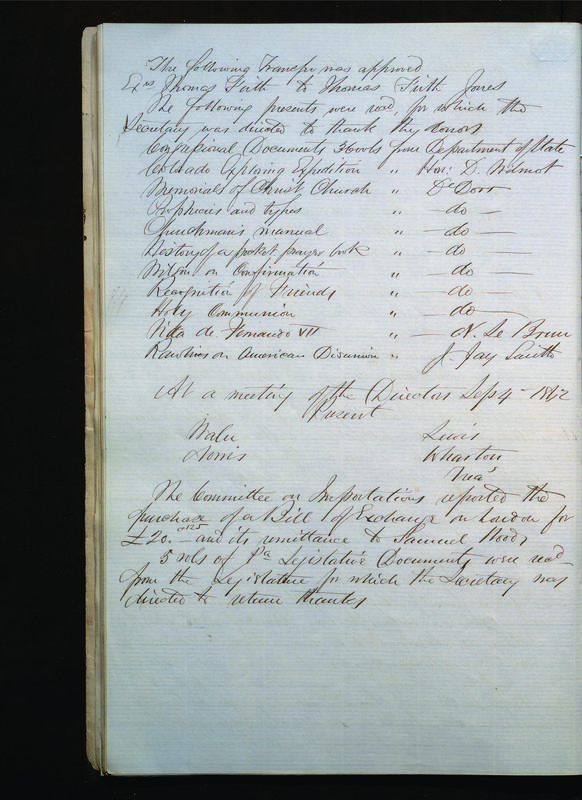 The following Transfer was approved
Exrs Thomas Firth to Thomas Firth Jones
The following presents were recd, for which the
Secretary was directed to thank the donors
Congressional Documents 36 vols from Department of State
Colorado Exploring Expedition " Hon: D. Wilmot
Memorials of Christ Church " Dr Dorr
Prophecies and types " — do —
Churchman's manual " — do —
History of a pocket prayer book " — do —
Wilson on Confirmation " — do —
Recognition of Friends " — do —
Holy Communion " — do —
Vida de Fernando VII " — N. Le Brun
Rawlins on American Disunion " J. Jay Smith
At a meeting of the Directors Sep 4 - 1862
Present
Waln Lewis
Norris Wharton
Treas
The Committee on Importations reported the
purchase of a Bill of Exchange on London for
£20. @ 125 — and its remittance to Samuel Wood,
5 vols of Pa Legislative Documents were recd
from the Legislature for which the Secretary was
directed to return thanks